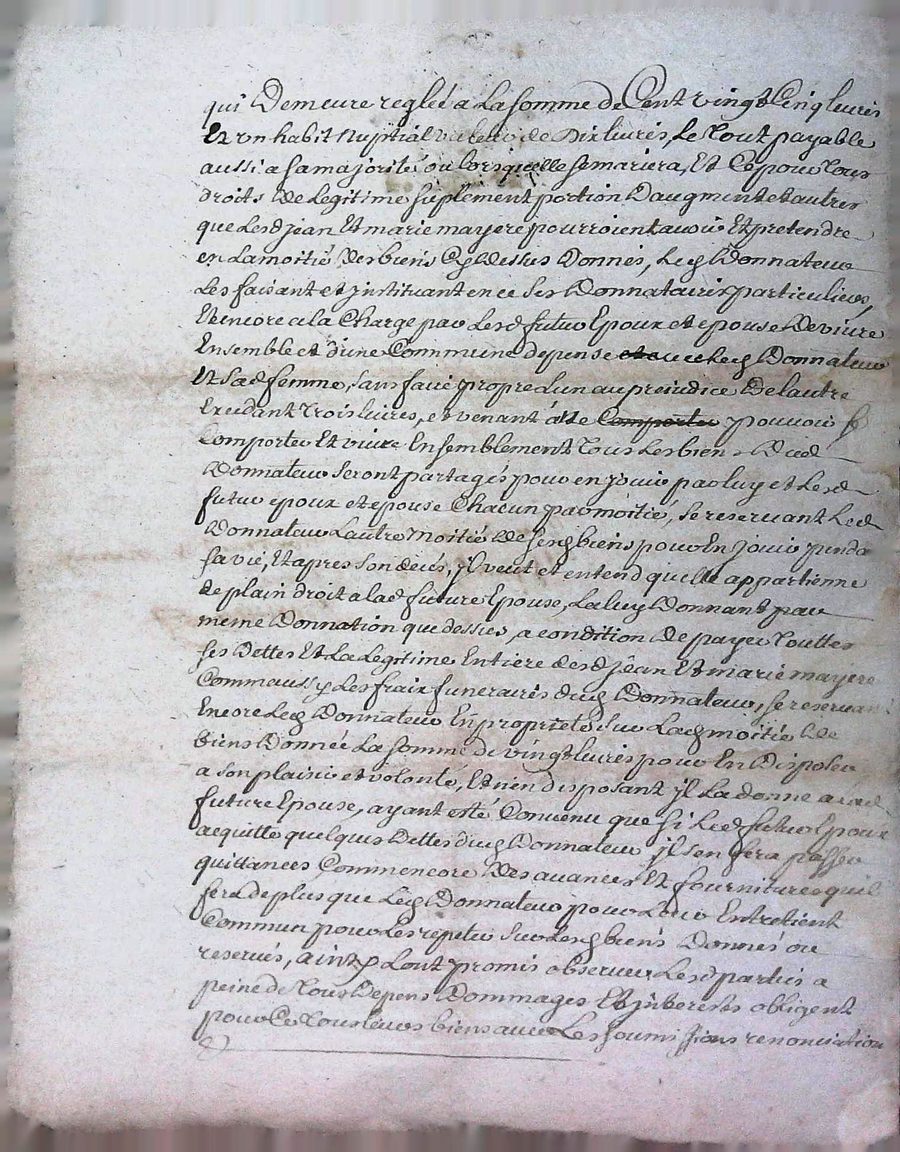 qui Demeure reglée a La somme de Cent vingt Cinq livres
Et un habit Nuptial valleur de Dix livres, le tout payable
aussi a sa majorité ou lorsquelle se mariera, Et Ce pour tous
droits de Legitime suplement portion Daugment et autres
que Lesd jean Et marie mayere pourroient avoir Et pretendre
en La moitié des biens Cy dessus Donnés, Led Donnateur
Les faisant et instituant en ce ses Donnataires particuliers,
Et encore a la Charge par Lesd futur Epoux et epouse De vivre
Ensemble et d'une Commune depense avec led Donnateur
Et sad femme, sans faire propre d'un au prejudice De lautre
Excedant trois livres, et venant a ne pouvoir se
Comporter Et vivre Ensemblement tous Les biens Dud
Donnateur seront partagés pour en jouir par luy et Lesd
futur epoux et epouse Chacun par moitié, se reservant Led
Donnateur Lautre moitié de sesd biens pour En jouir penda
sa vie, Et apres son décés, jl veut et entend quelle appartienne
de plain droit a lad future Epouse, La luy Donnant par
meme Donnation que dessus, a condition de payer touttes
ses Dettes Et La Legitime Entiere desd jean Et marie mayere
Comm'aussy Les fraix funeraires dud Donnateur, se reservant
Encore Led Donnateur En proprieté sur Lad moitié de
biens Donnée La somme de vingt livres pour En Disposer
a son plaisir et volonté, Et n'en disposant jl La donne a lad
future Epouse, ayant esté Convenu que si Led futur Epoux
acquitte quelques Dettes dud Donnateur jl s'en fera passer
quittances Comm'encore Des avances Et fournitures quil
fera de plus que Led Donnateur pour Leur Entretient
Commun pour Les repeter sur Lesd biens Donnés ou
reservés, ainsy Lont promis observer Lesd parties a
peine de tous Depens Dommages Et jnterests obligent
pour Ce tous leurs biens avec Les soumissions renonciations